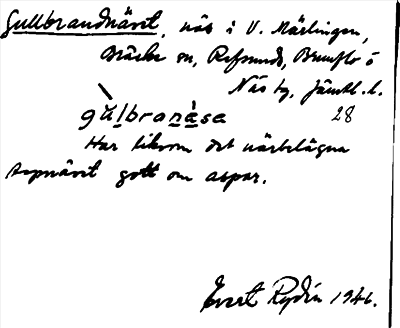 Gullbrandnäset, näs i V. Mårlingen,
Bräcke sn, Refsunds, Brunflo o
Näs tg, Jämtl. l.
gu̍lbranä̀sa 28
Har liksom det närbelägna
Aspnäset gott om aspar.
Evert Rydin 1946.